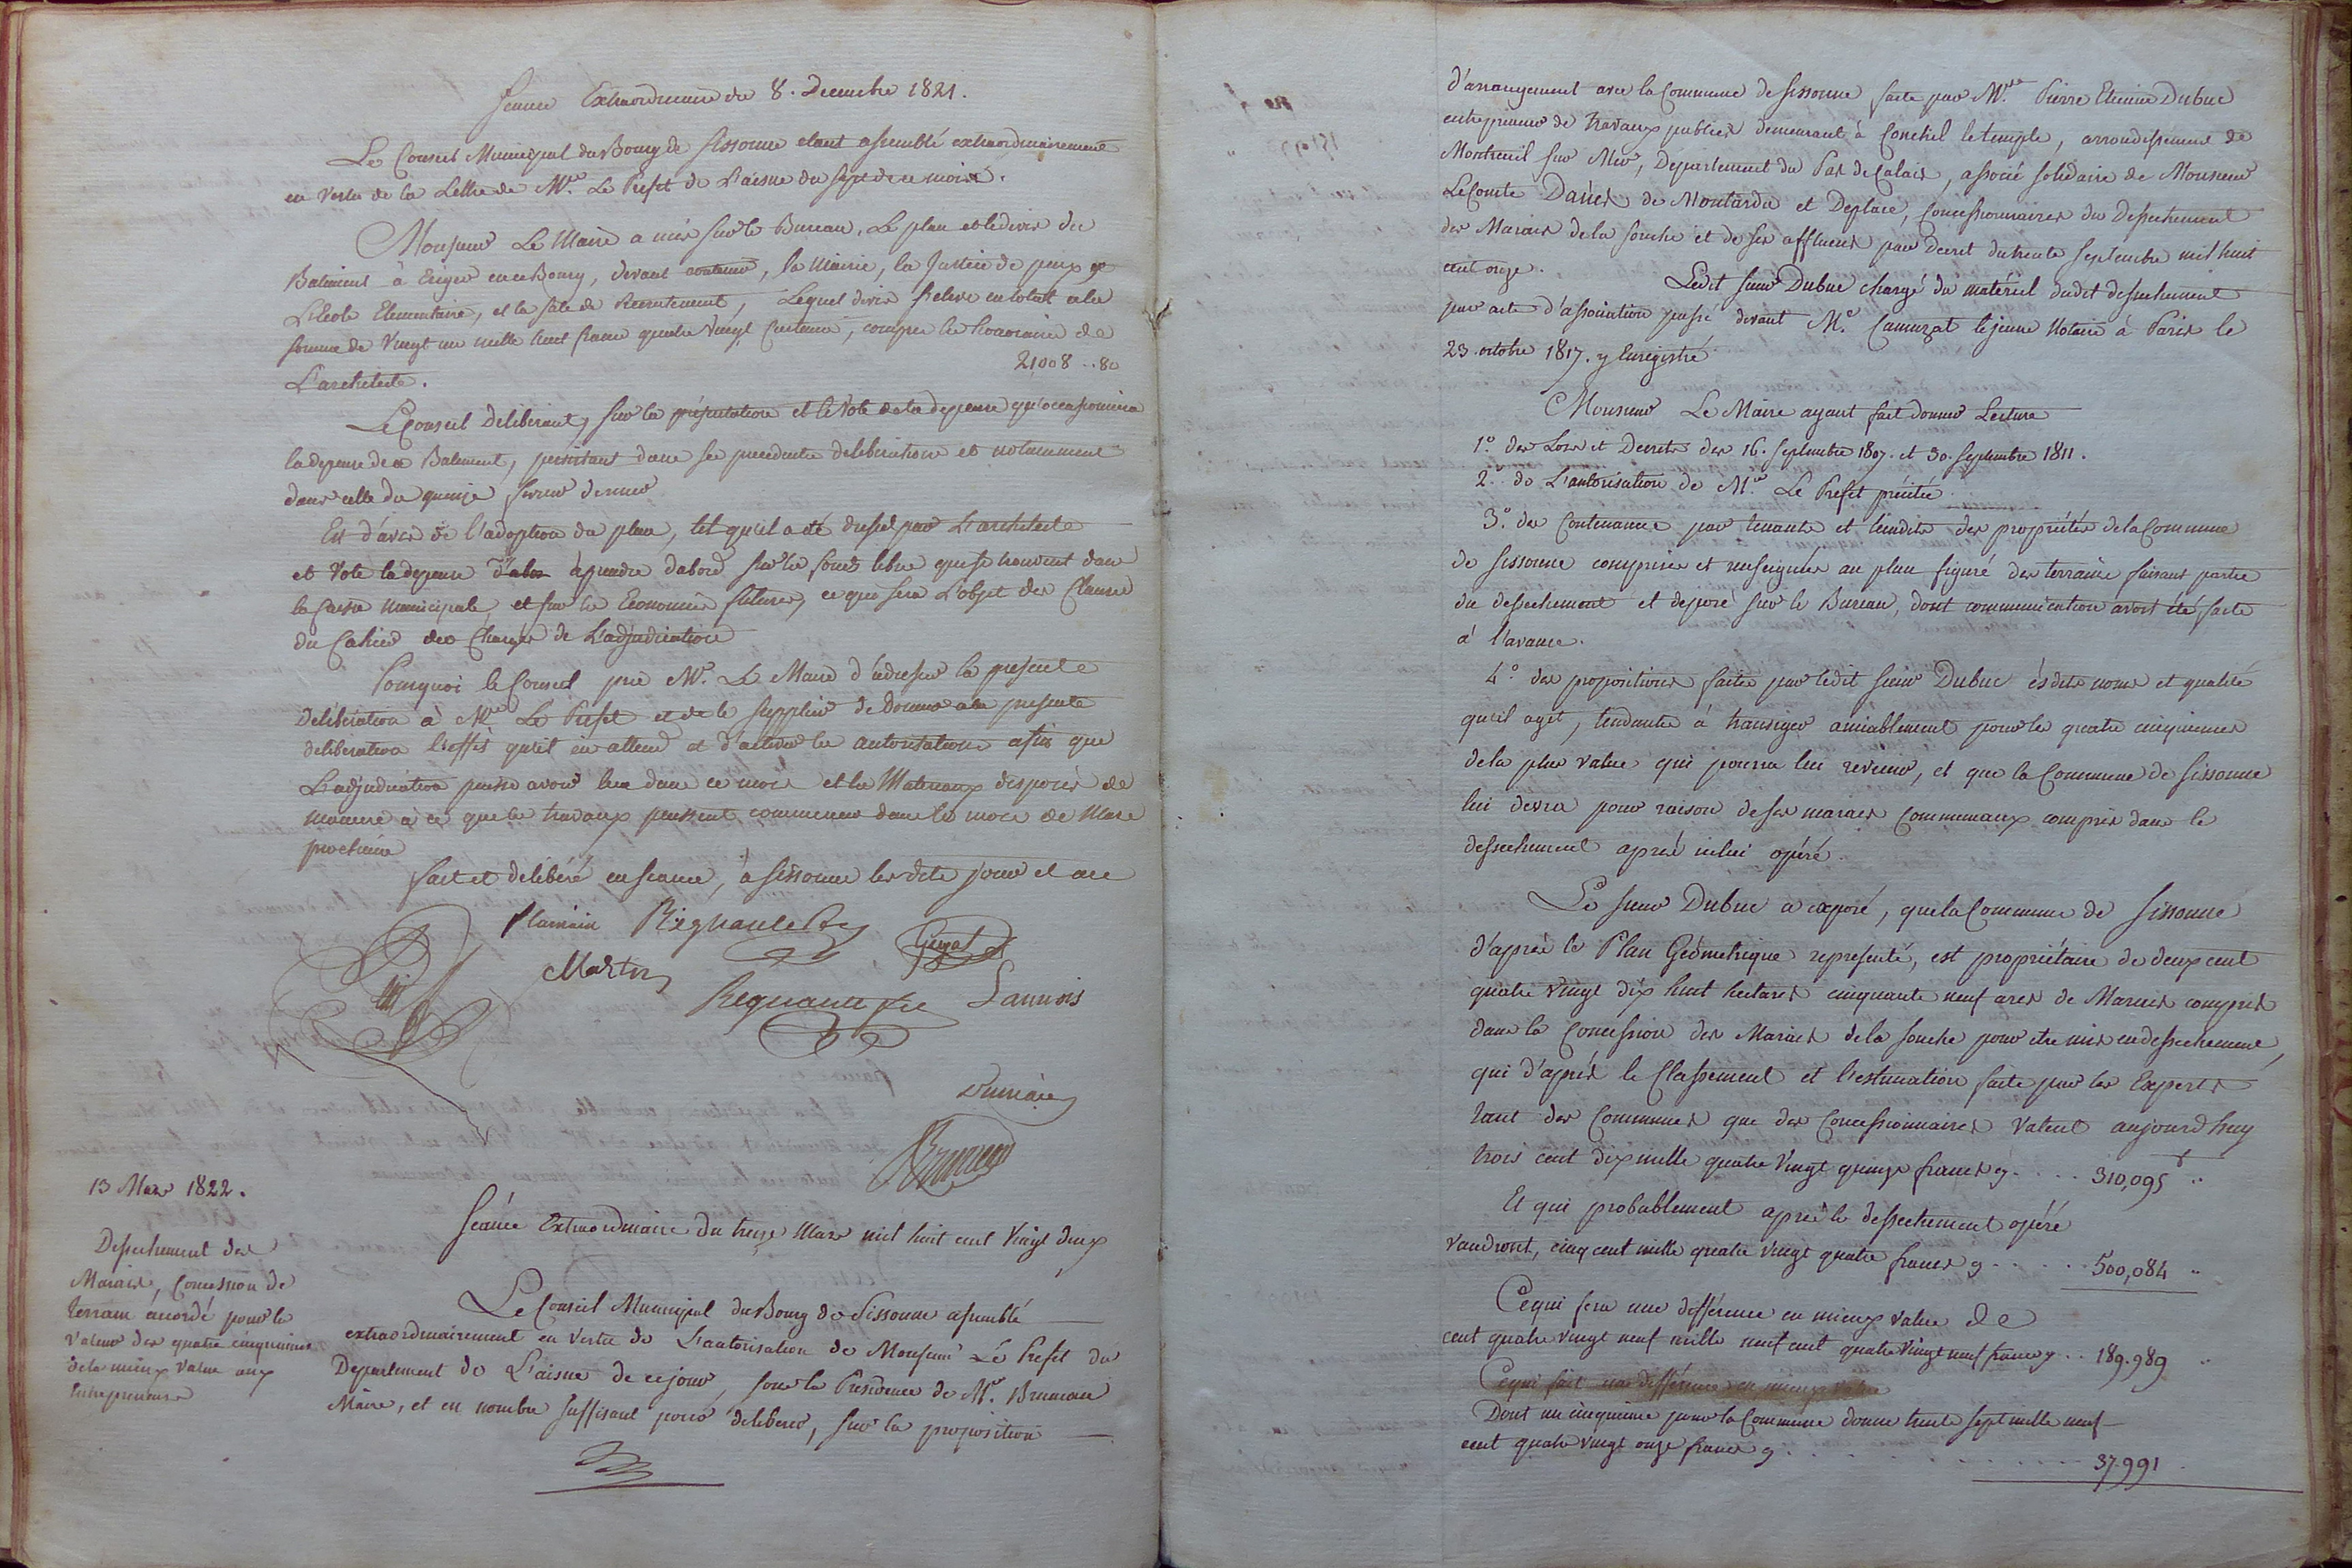 Séance Extraordinaire du 8. Decembre 1821.
Le Conseil Municipal du Bourg de Sissonne etant assemblé extraordinairement
en vertu de la Lettre de Mr. Le Prefet de L'aisne du sept de ce mois.
Monsieur Le Maire a mis sur le Bureau, Le plan et le devis du
Batiment à Eriger en ce Bourg, devant contenir, la Mairie, la Justice de paix et
L'Ecole Elementaire, et la sale de Recrutement, Lequel devis s'eleve en totalité a la
somme de Vingt un mille huit francs quatre Vingt Centimes, compris les honoraires de
L'architecte. 21,008..80
Le Conseil Deliberant, sur la présentation et le Vote de la depense qu'occasionnera
la depense de ce Batiment, persistant dans ses precedentes deliberations et notamment
dans celle du quinze fevrier dernier
Est d'avis de l'adoption du plan, tel qu'il a été dressé par L'architecte
et Vote la depense d'abor à prendre dabord sur les fonds libres qui se trouvent dans
la Caisse municipale, et sur les Economies futures, ce qui sera L'objet des Clauses
du Cahier des Charges de L'adjudication
Pourquoi le Conseil prie Mr. Le Maire d'adresser la presente
Deliberation à Mr. Le Prefet et de le supplier de Donner a la presente
deliberation l'effet qu'il en attend et d'activer les autorisations afin que
L'adjudication puisse avoir lieu dans ce mois et les Materiaux disposés de
maniere à ce que les travaux puissent commencer dans le mois de Mars
prochain
fait et délibéré en seance, à Sissonne les dits jour et an
Plamain Regnault
Guyot
Martin
Regnault
Lannois
Dumain
Bruneau
13 Mars 1822.
Dessechement des
Marais, Concession de
terrain accordé pour la
valeur des quatre cinquiemes
de la mieux value aux
Entrepreneurs
Séance Extraordinaire du treize Mars mil huit cent Vingt deux
Le Conseil Municipal du Bourg de Sissonne assemblé
extraordinairement en Vertu de L'autorisation de Monsieur Le Prefet du
Departement de L'aisne de ce jour, sous la Presidence de Mr. Bruneau
Maire, et en nombre suffisant pour deliberer, sur la proposition
d'arrangement avec la Commune de Sissonne faite par Mr. Pierre Etienne Dubuc
entrepreneur de travaux publics demeurant à Conchil le temple, arrondissement de
Montreuil sur Mer, Département du Pas de Calais, associé solidaire de Monsieur
Le Comte Danés de Montardu et Deplace, Concessionnaires du Dessechement
des Marais de la souche et de ses affluens par Decret du trente Septembre mil huit
cent onze.
Ledit sieur Dubuc chargé du matériel dudit dessechement
par acte d'association passé devant Me. Camuzat le jeune Notaire à Paris le
23. octobre 1817. y Enregistré
Monsieur Le Maire ayant fait donner Lecture
1.° des Lois et Decrets des 16. Septembre 1807. et 30. Septembre 1811.
2.° de L'autorisation de Mr. Le Prefet précitée
3.° des Contenances par tenants et lieudits des propriétés de la Commune
de Sissonne comprises et renseignées au plan figuré des terrains faisant partie
du dessechement et deposé sur le Bureau, dont communication avoit été faite
à l'avance.
4.° des propositions faites par ledit sieur Dubuc ès dits noms et qualité
qu'il agit, tendantes à transiger amiablement pour les quatre cinquiemes
de la plus value qui pourra lui revenir, et que la Commune de Sissonne
lui devra pour raison de ses marais Communaux compris dans le
dessechement aprés icelui opéré.
Le sieur Dubuc a exposé, que la Commune de Sissonne
d'après le Plan Géometrique representé, est propriétaire de deux cent
quatre Vingt dix huit hectares cinquante neuf ares de Marais compris
dans la Concession des Marais de la souche pour etre mis en dessechement,
qui d'aprés le Classement et l'estimation faite par les Experts
tant des Communes que des Concessionnaires valent aujourd'huy
trois cent dix mille quatre Vingt quinze francs cy.... 310,095 f ..
Et qui probablement après le dessechement opéré
vaudront, cinq cent mille quatre vingt quatre francs cy..... 500,084 ..
Ce qui fera une différence en mieux value de
cent quatre vingt neuf mille neuf cent quatre Vingt neuf francs cy.. 189.989 ..
Ce qui fait une différence en mieux value
Dont un cinquieme pour la Commune donne trente sept mille neuf
cent quatre vingt onze francs cy.......... 37.991